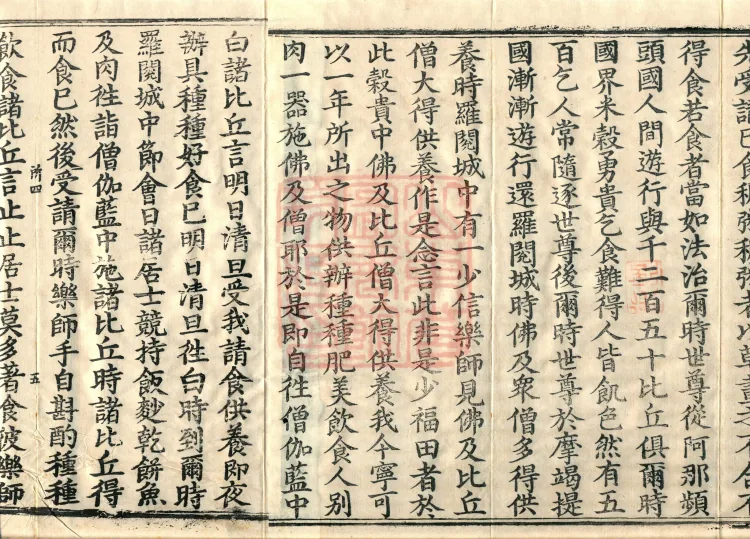 得食若食者當如法治爾時世尊從阿那頻
頭國人間遊行與千二百五十比丘俱爾時
國界米穀勇貴乞食難得人皆飢色然有五
百乞人常隨逐世尊後爾時世尊於摩竭提
國漸漸遊行還羅閱城時佛及衆僧多得供
養時羅閱城中有一少信樂師見佛及比丘
僧大得供養作是念言此非是少福田者於
此穀貴中佛及比丘僧大得供養我今寧可
以一年所出之物供辦種種肥美飲食人別
肉一器施佛及僧耶於是即自徃僧伽藍中
白諸比丘言明日清旦受我請食供養即夜
辦具種種好食已明日清旦徃白時到爾時
羅閱城中節會日諸居士競持飯麨乾餅魚
及肉徃詣僧伽藍中施諸比丘時諸比丘得
而食已然後受請爾時樂師手自斟酌種種
所四 五
飲食諸比丘言止止居士莫多著食彼樂師